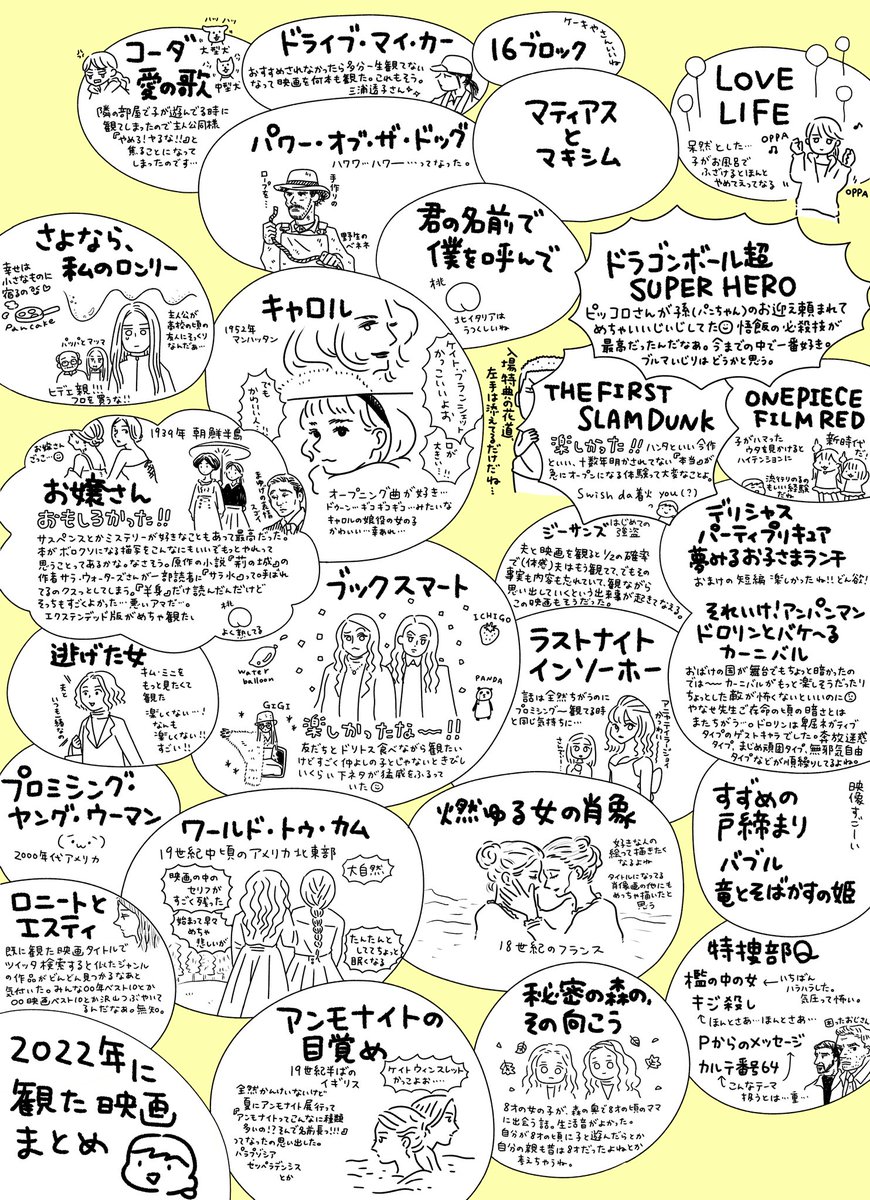 コーダ
愛の歌
ハッ ハッ
大型犬
中型犬
隣の部屋で子が遊んでる時に
観てしまったので主人公同様
『やめろ!ヤるな!!』と
焦ることになって
しまったのです…
ドライブ・マイ・カー
おすすめされなかったら多分一生観てない
なって映画を何本も観た。これもそう。
三浦透子さん
16ブロック
ケーキやさんいいね
マティアス
と
マキシム
LOVE
LIFE
呆然とした…
子がお風呂で
ふざけるとほんと
やめてってなる
OPPA
OPPA
パワー・オブ・ザ・ドッグ
ハワワ…ハワー…ってなった。
手作りの
ロープを…
野生の
ベネネ
君の名前で
僕を呼んで
桃
北イタリアは
うつくしいね
さよなら、
私のロンリー
幸せは
小さなものに
宿るのね
Pancake
主人公が
高校の頃の
友人にそっくり
なんだぁ…
パッパとマッマ
ヒデエ親!!!
フロを買うな!!
キャロル
1952年
マンハッタン
ケイト・ブランシェット
かっこいいよぉ
でも
かわいい人…!
口が
大きい…!!
オープニング曲が好き…
ドゥーン…ギコギコギコ…みたいな
キャロルの娘役の女の子
かわいい…幸あれ…
ドラゴンボール超
SUPER HERO
ピッコロさんが孫(パンちゃん)のお迎え頼まれて
めちゃいいじぃじしてた 悟飯の必殺技が
最高だったんだなぁ。今までの中で一番好き。
ブルマいじりはどうかと思う。
入場特典の花道
左手は添えてるだけだね…
THE FIRST
SLAM DUNK
楽しかった!! ハンタといい今作
といい、十数年明かされてない『本当』が
急にオープンになる体験って大事なことよ。
Swish da着火 you(?)
ONEPIECE
FILM RED
子がハマった
ウタを見かけると
ハイテンションに
新時代だ!
流行りのるの
もいい経験
だね
お嬢さん
ごっこ…
1939年 朝鮮半島
お嬢さん
おもしろかった!!
まゆげの表情
スゴイ
サスペンスとかミステリーが好きなこともあって最高だった。
本がボロクソになる描写をこんなにもいいぞもっとやれって
思うことってあるかな。なさそう。原作の小説『荊の城』の
作者サラ・ウォーターズさんが一部読者に『サラ水』って呼ばれ
てるのクスッとしてしまう。『半身』だけ読んだんだけど
そっちもすごくよかった…悪いアマだ…。
エクステンデッド版がめちゃ観たい。
桃
よく熟してる
ブックスマート
ICHIGO
water
balloon
PANDA
GIGI
楽しかったな〜!!
友だちとドリトス食べながら観たい
けどすごく仲よしの子とじゃないときびし
いくらい下ネタが猛威をふるって
いた
ジーサンズ はじめての
強盗
夫と映画を観ると1/2の確率
で(体感)夫はもう観てて、でもその
事実も内容も忘れていて、観ながら
思い出していくという出来事が起きてなえる。
この映画もそうだった。
デリシャス
パーティプリキュア
夢みるお子さまランチ
おまけの短編 楽しかったね!!どん欲!
それいけ!アンパンマン
ドロリンとバケ〜る
カーニバル
おばけの国が舞台でもちょっと暗かったの
では〜〜カーニバルがもっと楽しそうだったり
ちょっとした敵が怖くないといいのに
やなせ先生ご存命の頃の暗さとは
またちがう…。ドロリンは卑屈ネガティブ
タイプのゲストキャラでした。奔放迷惑
タイプ、まじめ頑固タイプ、無邪気自由
タイプなどが順繰りしてるよね。
逃げた女
キム・ミニを
もっと見たくて
観た
楽しくない…!
なんも
楽しくない!!
すごい!!
夫と
いつも一緒なの
ラストナイト
インソーホー
話は全然ちがうのに
プロミシング〜観てる時
と同じ気持ちに…
アニャテイラージョイ
かわいい…
プロミシング・
ヤング・ウーマン
2000年代アメリカ
ワールド・トゥ・カム
19世紀中頃のアメリカ北東部
映画の中の
セリフが
すごく残った
始まって早々
めちゃ
悲しいが
大自然
たんたんと
しててちょっと
眠くなる
燃ゆる女の肖象
好きな人の
絵って描きたく
なるよね
タイトルになってる
肖像画の他にも
めちゃ描いたと
思う
18世紀のフランス
すずめの
戸締まり
バブル
竜とそばかすの姫
映像すご〜い
ロニートと
エスティ
既に観た映画タイトルで
ツイッタ検索すると似たジャンル
の作品がどんどん見つかるなあと
気付いた。みんな00年ベスト10とか
〇〇映画ベスト10とか沢山つぶやいて
るんだなぁ。無知。
アンモナイトの
目覚め
19世紀半ばの
イギリス
全然かんけいないけど
夏にアンモナイト展行って
『アンモナイトってこんなに種類
多いの!?そんで名前長っ!!!』
ってなったの思い出した。
パラプゾシア
セッペラデンシス
とか
ケイトウィンスレット
かっこよお…
秘密の森の、
その向こう
8才の女の子が、森の奥で8才の頃のママ
に出会う話。生活音がよかった。
自分が8才の頃に子と遊んだらとか
自分の親も昔は8才だったよねとか
考えちゃうね。
特捜部Q
檻の中の女 ←いちばん
ハラハラした。
気圧って怖い。
キジ殺し
ほんとさあ…ほんとさあ…
Pからのメッセージ
カルテ番号64
こんなテーマ
扱うとは…重…
困ったおじさん
2022年に
観た映画
まとめ